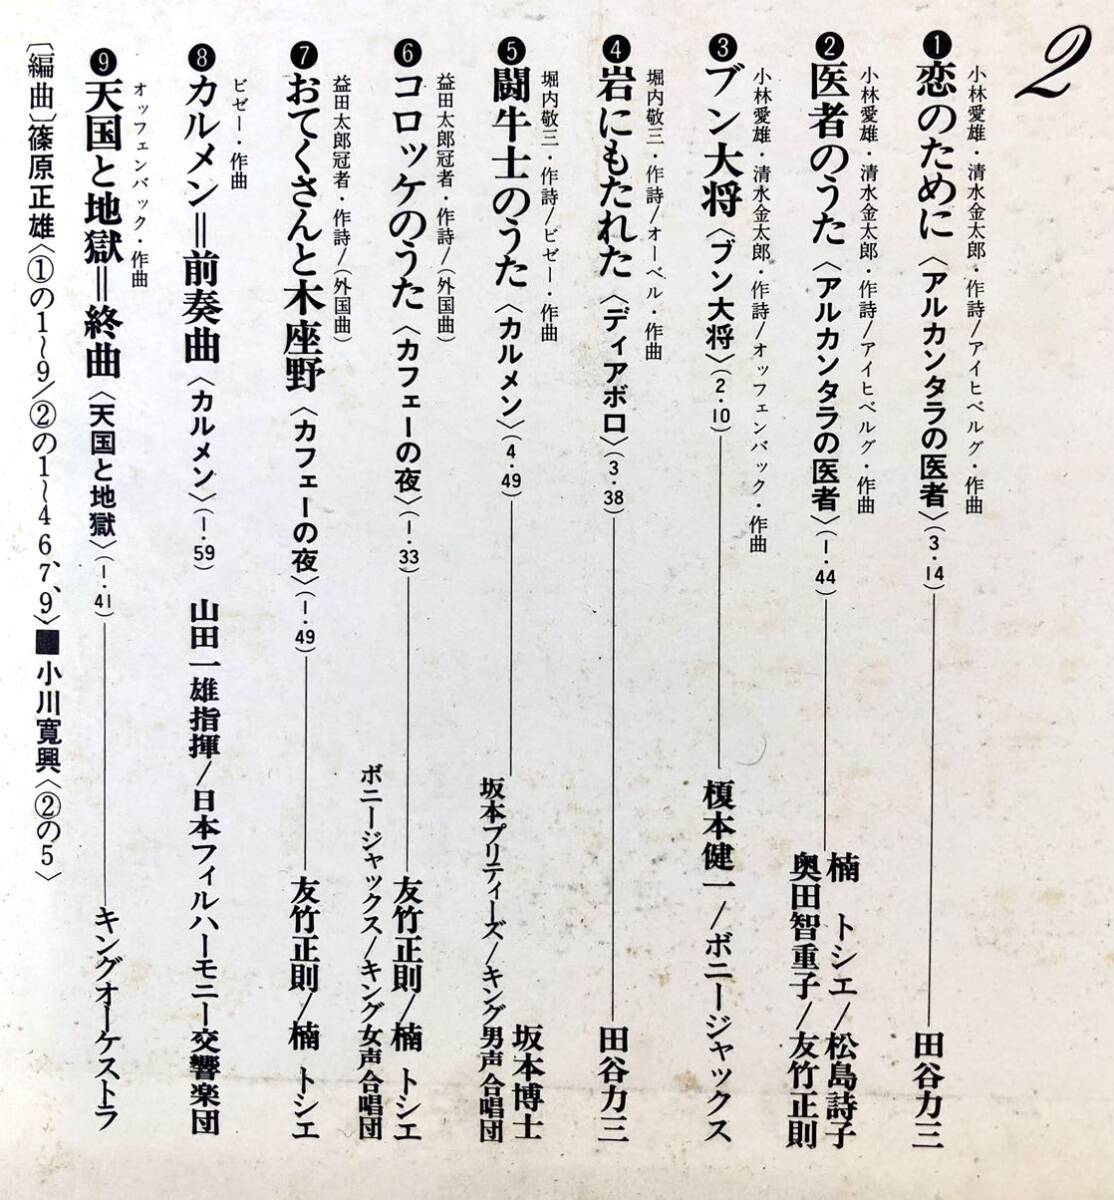 2
小林愛雄・清水金太郎・作詩/アイヒベルグ・作曲
❶恋のために〈アルカンタラの医者〉(3・14)田谷力三
小林愛雄・清水金太郎・作詩/アイヒベルグ・作曲
❷医者のうた〈アルカンタラの医者〉(1・44)楠 トシエ/松島詩子
奥田智重子/友竹正則
小林愛雄・清水金太郎・作詩/オッフェンバック・作曲
❸ブン大将〈ブン大将〉(2・10)榎本健一/ボニージャックス
堀内敬三・作詩/オーベル・作曲
❹岩にもたれた〈ディアボロ〉(3・38)田谷力三
堀内敬三・作詩/ビゼー・作曲
❺闘牛士のうた〈カルメン〉(4・49)坂本博士
坂本プリティーズ/キング男声合唱団
益田太郎冠者・作詩/(外国曲)
❻コロッケのうた〈カフェーの夜〉(1・33)友竹正則/楠 トシエ
ボニージャックス/キング女声合唱団
益田太郎冠者・作詩/(外国曲)
❼おてくさんと木座野〈カフェーの夜〉(1・49)友竹正則/楠 トシエ
ビゼー・作曲
❽カルメン=前奏曲〈カルメン〉(1・59)山田一雄指揮/日本フィルハーモニー交響楽団
オッフェンバック・作曲
❾天国と地獄=終曲〈天国と地獄〉(1・41)キングオーケストラ
〔編曲〕篠原正雄〈①の1〜9/②の1〜4 6、7、9〉■小川寛興〈②の5〉